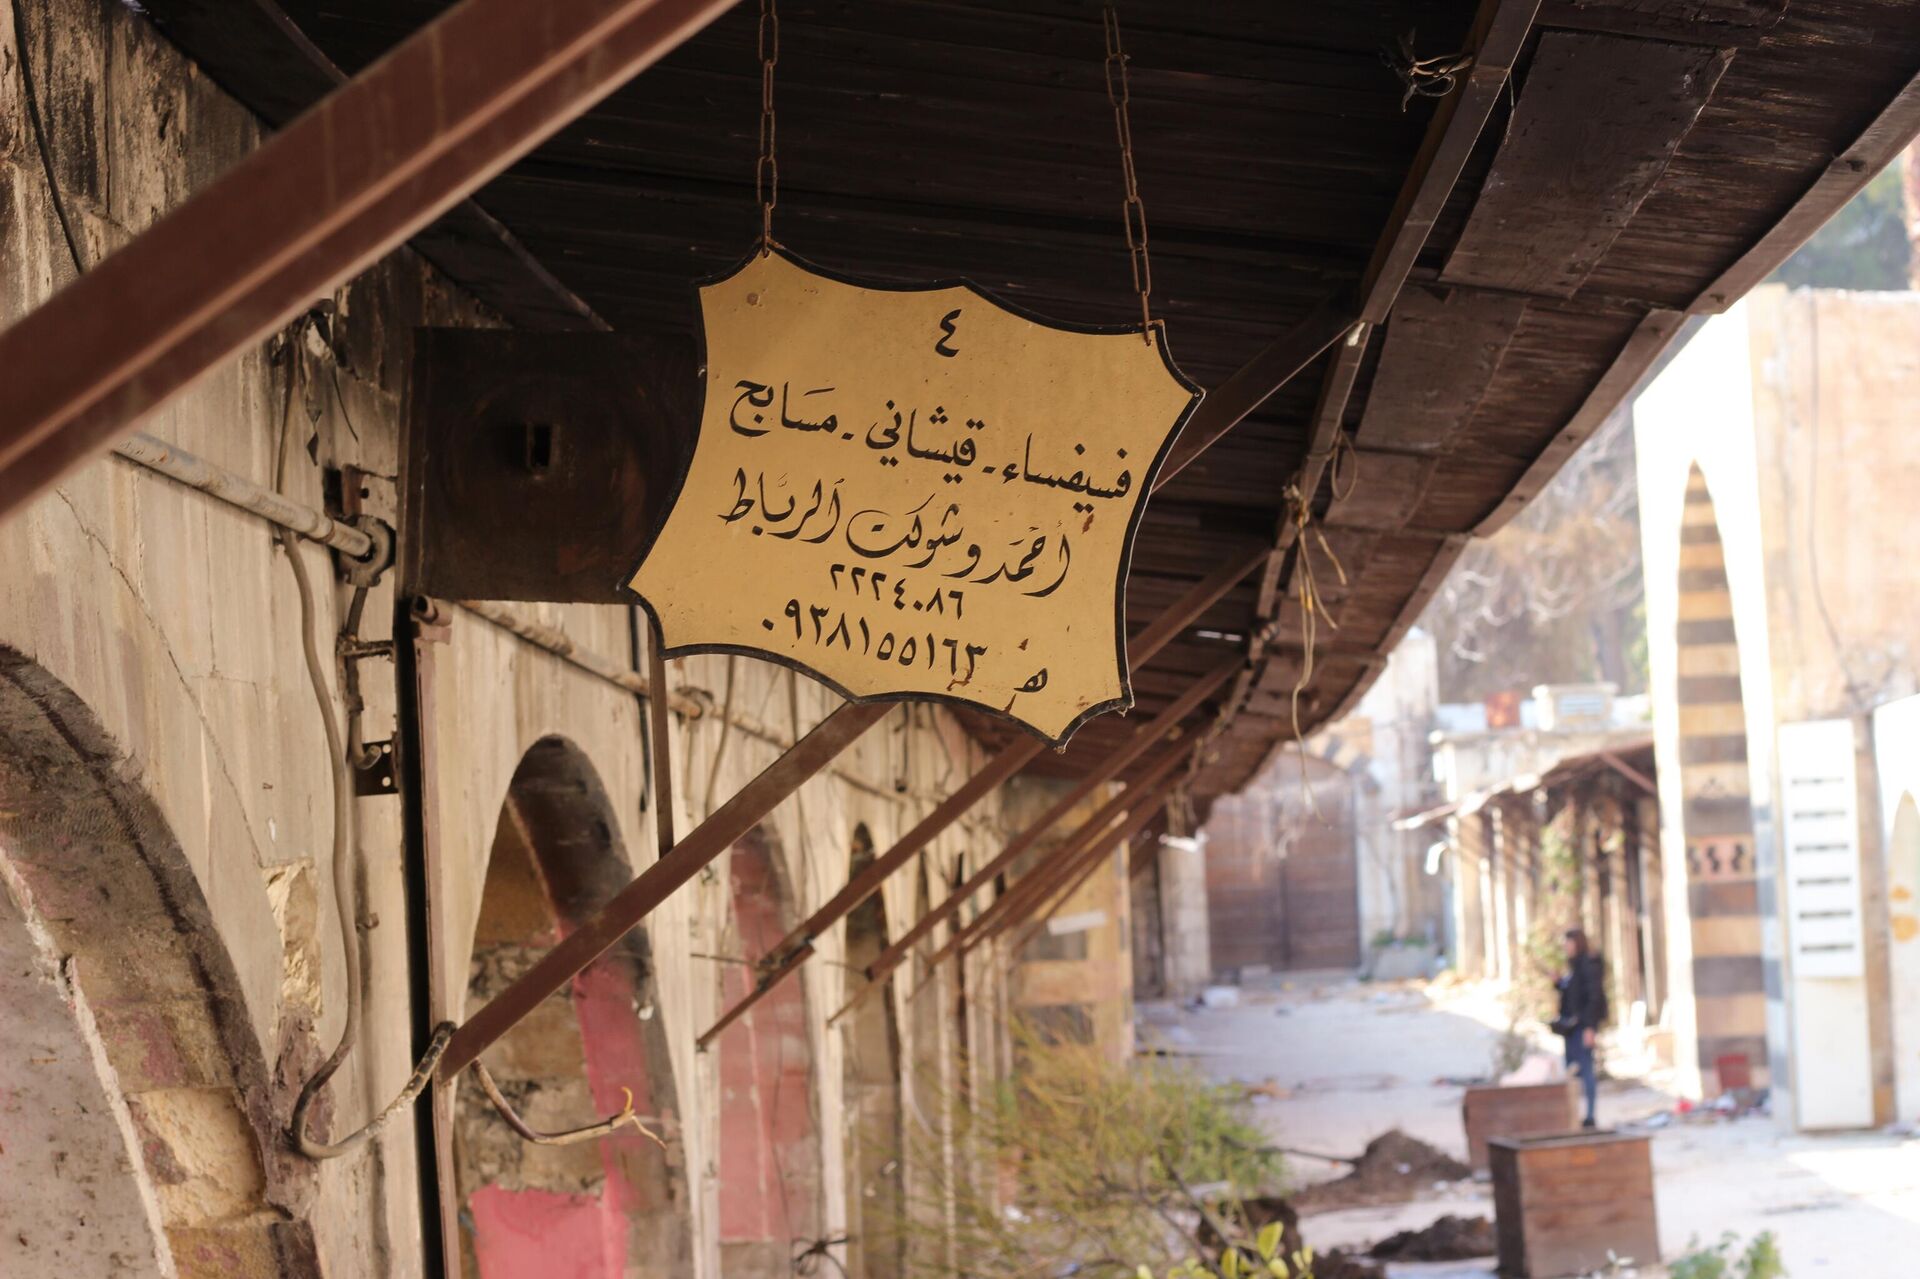 ٤
فسيفساء - قيشاني - مسابح
أحمد وشوكت الرباط
٢٢٢٤٠٨٦
هـ ٠٩٣٨١٥٥١٦٣